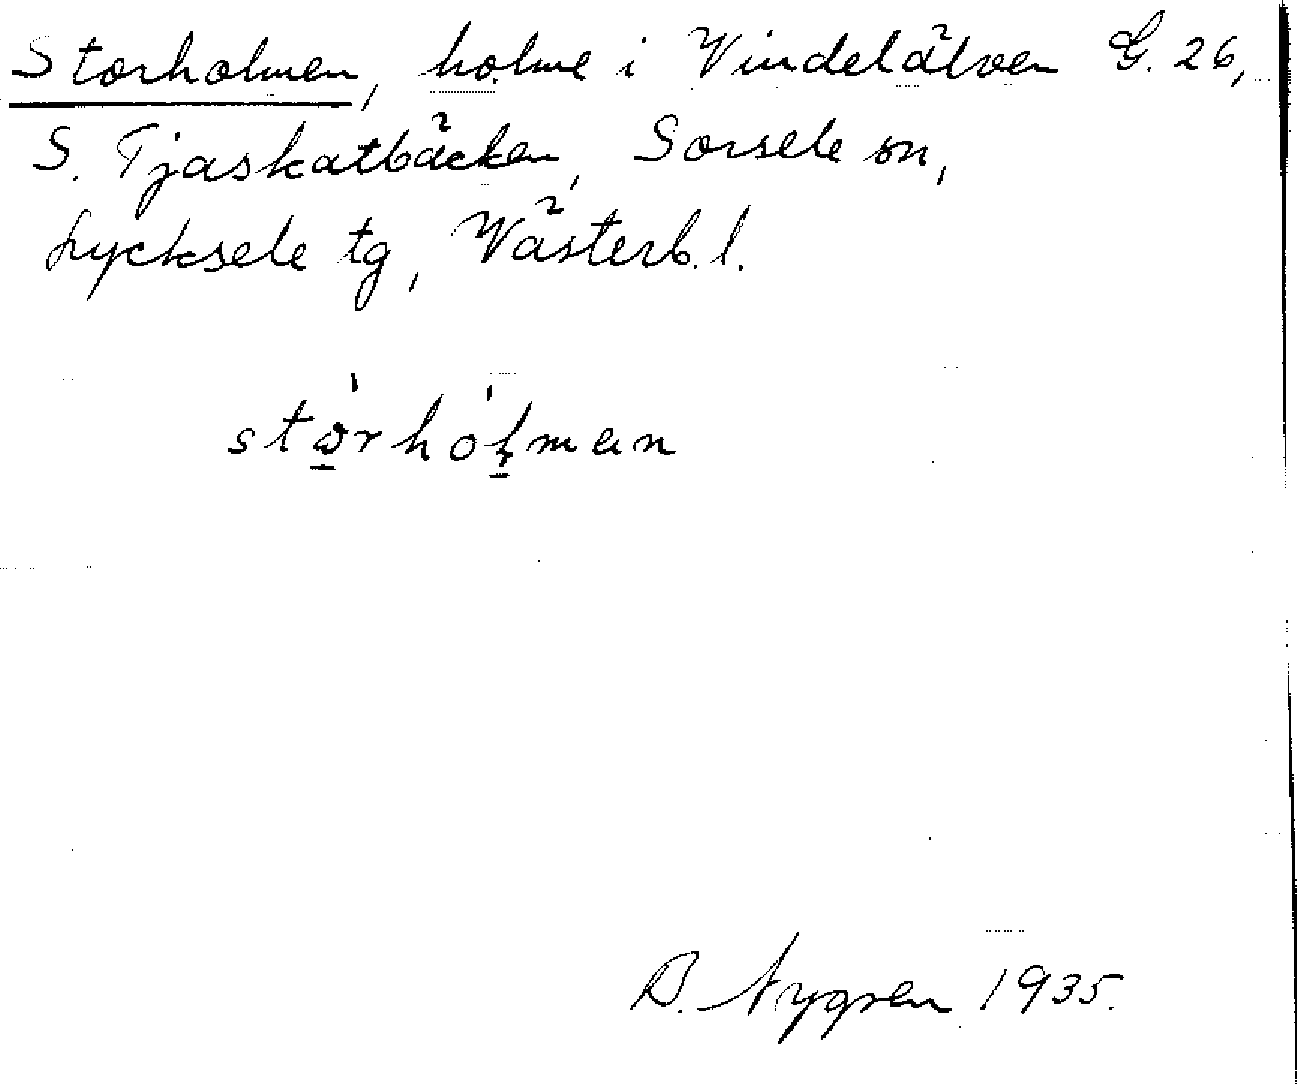 Storholmen, holme i Vindelälven G. 26,
S. Tjaskatbäcken, Sorsele sn,
Lycksele tg, Västerb. l.
stòrhólman
B. Nygren 1935.